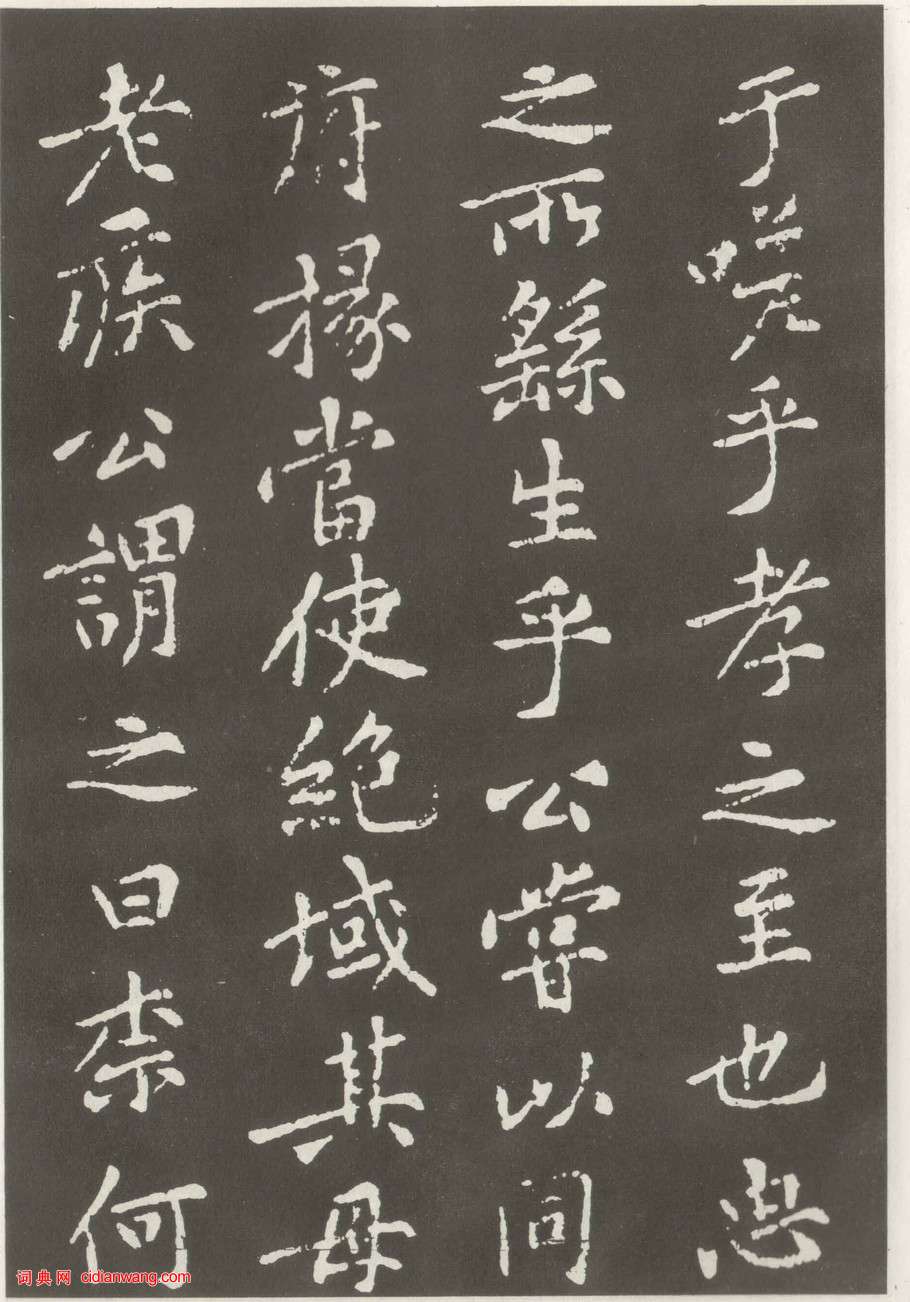 于嗟乎孝之至也忠
之所繇生乎公嘗以同
府掾當使絶域其母
老疾公謂之曰柰何
词典网 cidianwang.com